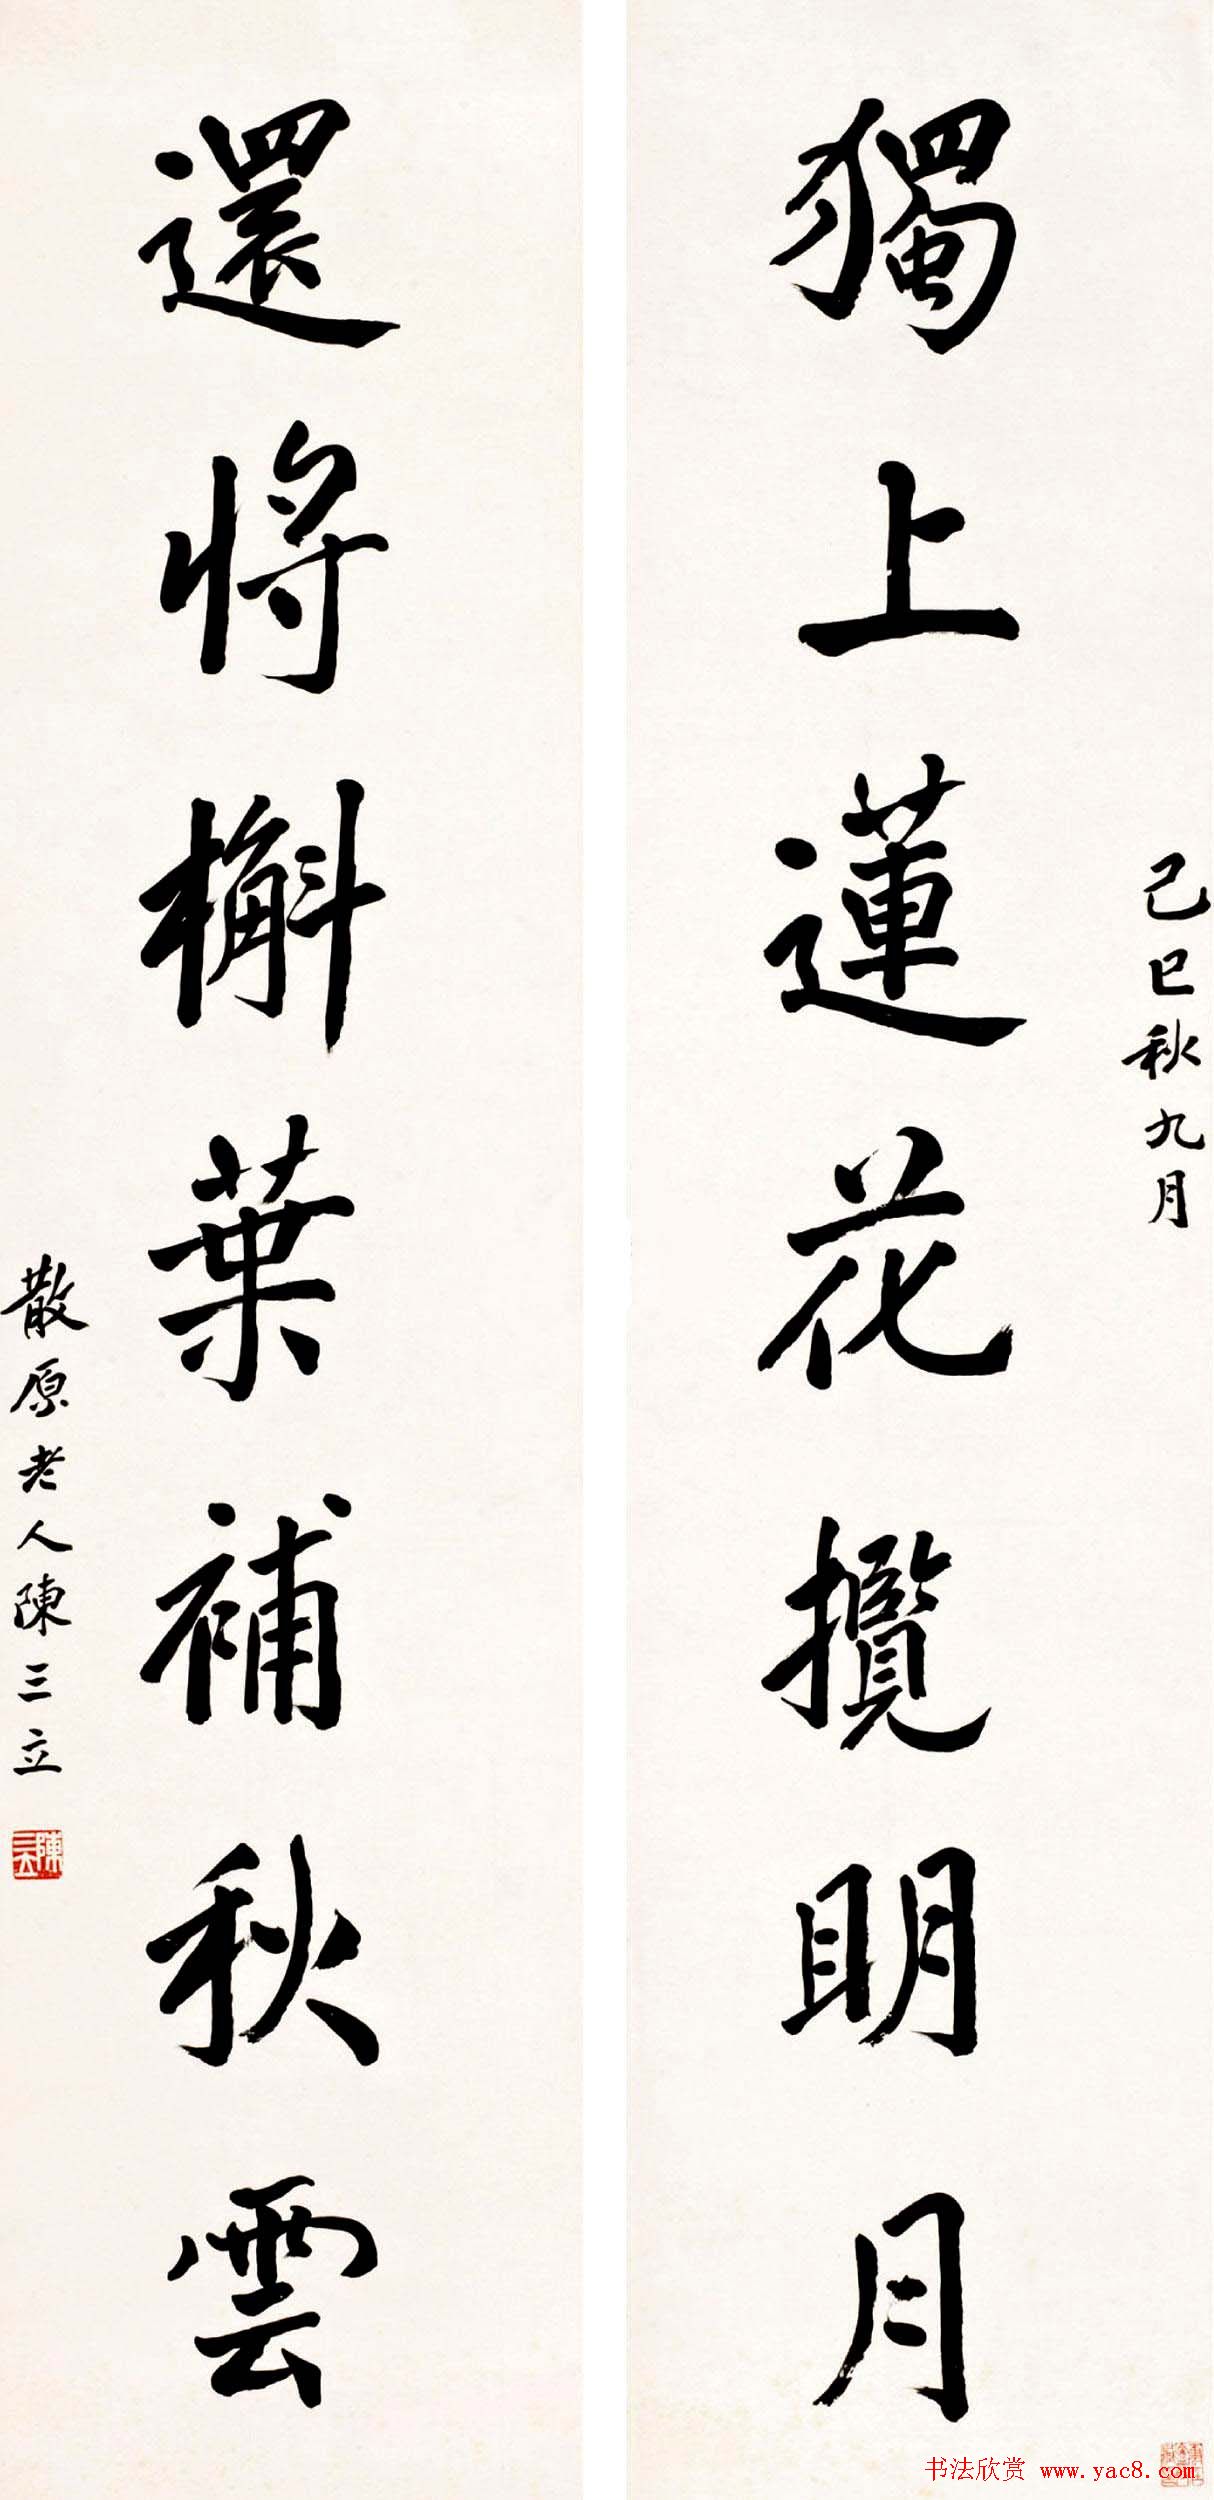 己巳秋九月
獨上蓮花攬明月
還將槲葉補秋雲
散原老人陳三立
陳三立
书法欣赏 www.yac8.com